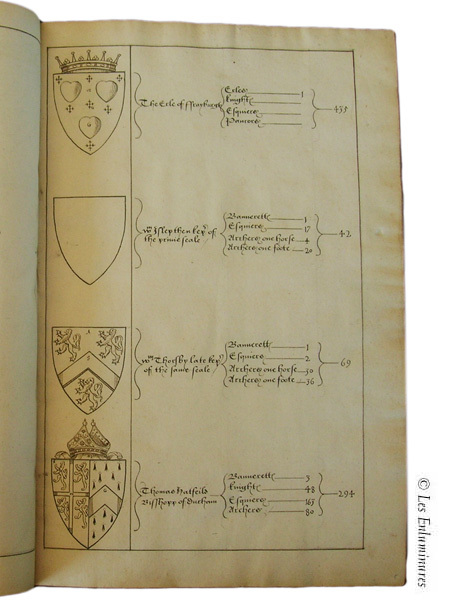 The Erle of
Erles 1
Knight
Esquiers
435
Wm Isley then kep. of
the privie seale
Bannerett 1
Esquiers 17
Archers one horse 4
Archers one foote 20
42
Wm Thorsby late kep.
of the same seale
Bannerett 1
Esquiers 2
Archers one horse 30
Archers one foote 36
69
Thomas Hatfeild
Bisshopp of Durham
Bannerett 3
Knight 48
Esquiers
Archers 80
294
© Les Enluminures